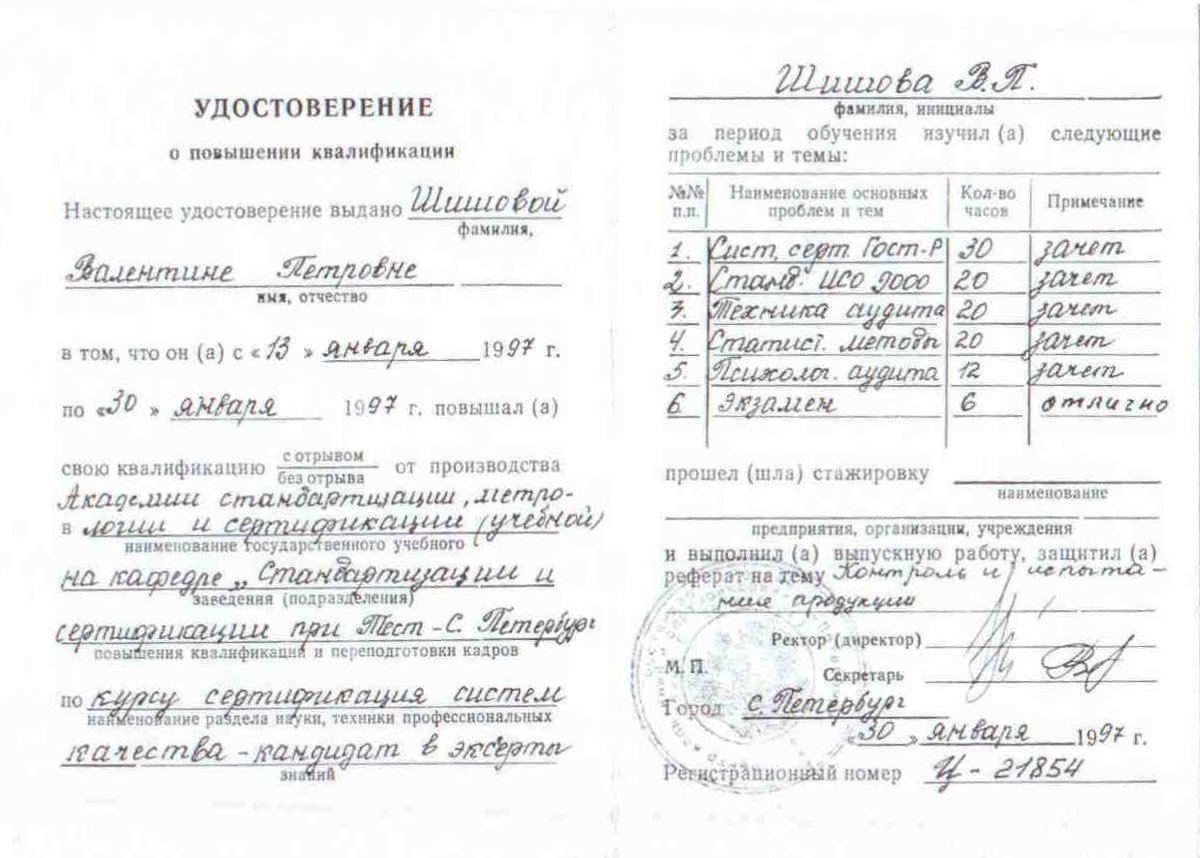 УДОСТОВЕРЕНИЕ
о повышении квалификации
Настоящее удостоверение выдано Шишовой
фамилия,
Валентине Петровне
имя, отчество
в том, что он (а) с «13» января 1997 г.
по «30» января 1997 г. повышал (а)
свою квалификацию с отрывом
без отрыва от производства
Академии стандартизации, метро-
в логии и сертификации (учебной)
наименование государственного учебного
на кафедре „Стандартизации и
заведения (подразделения)
сертификации при Тест-С. Петербург
повышения квалификации и переподготовки кадров
по курсу сертификация систем
наименование раздела науки, техники профессиональных
качества - кандидат в эксперты
знаний
Шишова В.П.
фамилия, инициалы
за период обучения изучил (а) следующие
проблемы и темы:
№№ п.п. Наименование основных проблем и тем Кол-во часов Примечание
1. Сист. серт. Гост-Р 30 зачет
2. Станд. ИСО 9000 20 зачет
3. Техника аудита 20 зачет
4. Статист. методы 20 зачет
5. Психолог. аудита 12 зачет
6 Экзамен 6 отлично
прошел (шла) стажировку
наименование
предприятия, организации, учреждения
и выполнил (а) выпускную работу, защитил (а)
реферат на тему Контроль и испыта-
ние продукции
Ректор (директор)
М. П.
Секретарь
Город С. Петербург
«30» января 1997 г.
Регистрационный номер Ц - 21854